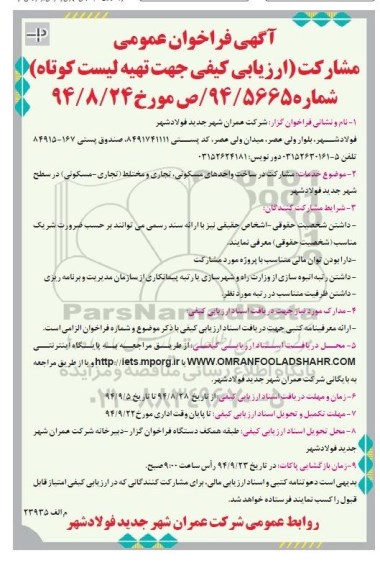 آگهی فراخوان عمومی
مشارکت (ارزیابی کیفی جهت تهیه لیست کوتاه)
شماره ۹۴/۵۶۶۵/ص مورخ ۹۴/۸/۲۴
۱-نام و نشانی فراخوان گزار: شرکت عمران شهر جدید فولادشهر
فولادشهر، بلوار ولی عصر، میدان ولی عصر، کد پستی ۸۴۹۱۷۴۱۱۱۱، صندوق پستی ۱۶۷-۸۴۹۱۵
تلفن ۵-۰۳۱۵۲۶۳۰۱۶۱ دورنویس: ۰۳۱۵۲۶۲۴۱۸۱
۲-موضوع خدمات: مشارکت در ساخت واحدهای مسکونی، تجاری و مختلط (تجاری-مسکونی) در سطح
شهر جدید فولادشهر
۳-شرایط مشارکت کنندگان
- داشتن شخصیت حقوقی -اشخاص حقیقی نیز با ارائه سند رسمی می توانند بر حسب ضرورت شریک
مناسب (شخصیت حقوقی) معرفی نمایند.
-دارا بودن توان مالی متناسب با پروژه مورد مشارکت
-داشتن رتبه انبوه سازی از وزارت راه و شهرسازی یا رتبه پیمانکاری از سازمان مدیریت و برنامه ریزی
- داشتن ظرفیت متناسب در رتبه مورد نظر.
۴-مدارک مورد نیاز جهت دریافت اسناد ارزیابی کیفی:
-ارائه معرفینامه کتبی جهت دریافت اسناد ارزیابی کیفی با ذکر موضوع و شماره فراخوان الزامی است.
۵-محل دریافت اسناد ارزیابی کیفی: از طریق مراجعه به پایگاه اینترنتی
WWW.OMRANFOOLADSHAHR.COM یا http://iets.mporg.ir و یا از طریق مراجعه
به بایگانی شرکت عمران شهر جدید فولادشهر.
۶-زمان و مهلت دریافت اسناد ارزیابی کیفی: از تاریخ ۹۴/۸/۲۸ تا تاریخ ۹۴/۹/۵
۷-مهلت تکمیل و تحویل اسناد ارزیابی کیفی: تا پایان وقت اداری مورخ ۹۴/۹/۲۲
۸-محل تحویل اسناد ارزیابی کیفی: طبقه همکف دستگاه فراخوان گزار -دبیرخانه شرکت عمران شهر
جدید فولادشهر
۹-زمان بازگشایی پاکات: در تاریخ ۹۴/۹/۲۳ رأس ساعت ۹:۰۰ صبح.
بدیهی است دعوتنامه کتبی و اسناد ارزیابی مالی، برای مشارکت کنندگانی که در ارزیابی کیفی امتیاز قابل
قبول را کسب نمایند فرستاده خواهد شد.
م الف ۲۳۹۳۵
روابط عمومی شرکت عمران شهر جدید فولادشهر